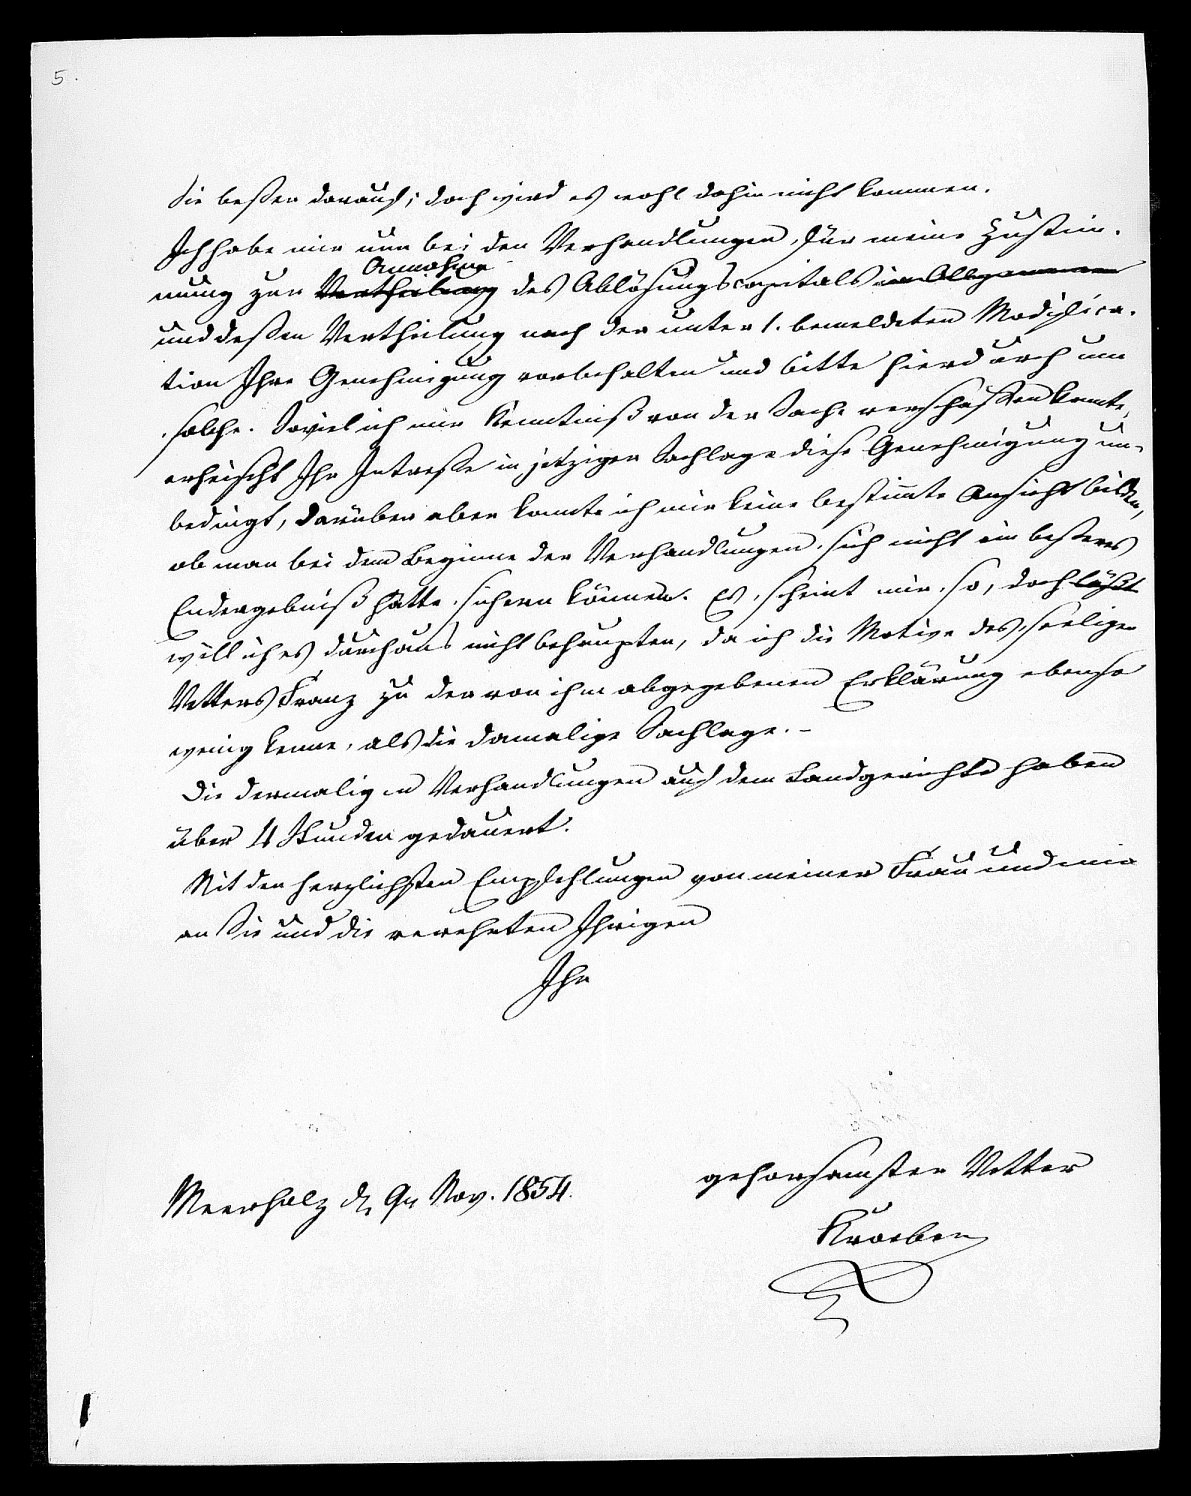 5.
Sie beßer daraus; doch wird es wohl dahin nicht kommen.
Ich habe mir nun bei den Verhandlungen, für meine Zustim-
Annahme
mung zur Vertheilung des Ablösungscapitals im Allgemeinen
und deßen Vertheilung nach der unter 1. bemeldeten Modifica-
tion Ihre Genehmigung vorbehalten und bitte hierdurch um
solche. Soviel ich mir Kenntniß von der Sache verschaffen konnte,
erheischt Ihr Intreße in jetziger Sachlage diese Genehmigung un-
bedingt, darüber aber konnte ich mir keine bestimte Ansicht bilden,
ob man bei dem Beginne der Verhandlungen sich nicht ein beßeres
Endergebniß hätte sichern können. Es scheint mir so, doch läßt
will ich es durchaus nicht behaupten, da ich die Motive des seeligen
Vetters Franz zu der von ihm abgegebenen Erklärung ebenso
wenig kenne, als die damalige Sachlage. –
Die dermaligen Verhandlungen auf dem Landgerichte haben
über 4 Stunden gedauert.
Mit den herzlichsten Empfehlungen von meiner Frau und mir
an Sie und die verehrten Ihrigen
Ihr
gehorsamster Vetter
Meerholz d. 9n Nov. 1854.
Kroeber